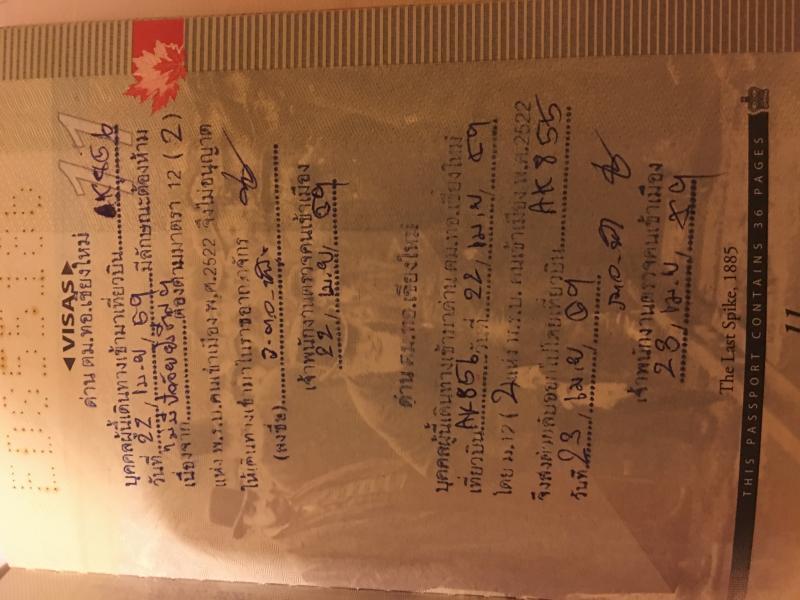 ◄VISAS►
11
ด่าน ตม.ทอ.เชียงใหม่
บุคคลผู้นี้เดินทางเข้ามาเที่ยวบิน AK856
วันที่ 22 / เม.ย / 59 มีลักษณะต้องห้าม
เนื่องจาก ไม่มีปัจจัยยังชีพฯ ต้องตามมาตรา 12 (2)
แห่ง พ.ร.บ.คนเข้าเมือง พ.ศ.2522 จึงไม่อนุญาต
ให้เดินทางเข้ามาในราชอาณาจักร
(ลงชื่อ)
เจ้าพนักงานตรวจคนเข้าเมือง
22 / เม.ย / 59
ด่าน ตม.ทอ.เชียงใหม่
บุคคลผู้นี้เดินทางเข้ามาด่าน ตม.ทอ.เชียงใหม่
เที่ยวบิน AK856 วันที่ 22 / เม.ย / 59
โดย ม.12 ( 2 ) แห่ง พ.ร.บ. คนเข้าเมือง พ.ศ.2522
จึงส่งตัวกลับออกไปโดยเที่ยวบิน AK 855
วันที่ 23 / เม.ย / 59
เจ้าพนักงานตรวจคนเข้าเมือง
23 / เม.ย / 59
The Last Spike, 1885
THIS PASSPORT CONTAINS 36 PAGES
11